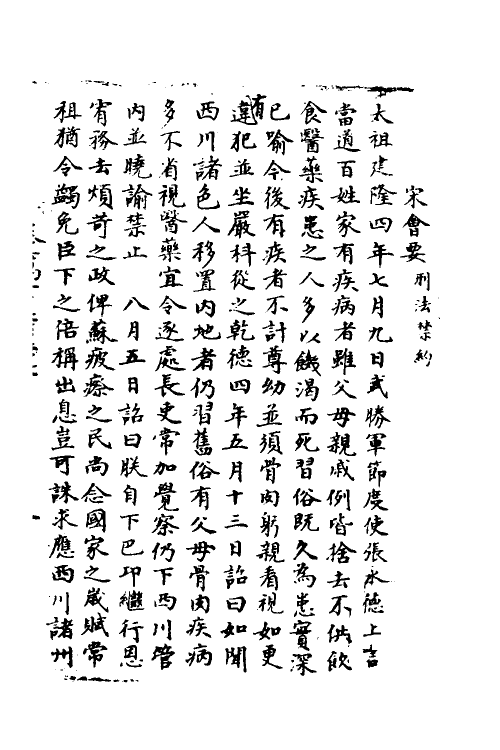 宋會要 刑法禁約
太祖建隆四年七月九日武勝軍節度使張永德上言
當道百姓家有疾病者雖父母親戚例皆捨去不供飲
食醫藥疾患之人多以饑渴而死習俗既久為患實深
已喻今後有疾者不計尊幼並須骨肉躬親看視如更
有違犯並坐嚴科從之乾德四年五月十三日詔曰如聞
西川諸色人移置內地者仍習舊俗有父母骨肉疾病
多不省視醫藥宜令逐處長吏常加覺察仍下西川管
內並曉諭禁止 八月五日詔曰朕自下巴邛繼行恩
宥務去煩苛之政俾蘇疲瘵之民尚念國家之歲賦常
租猶令蠲免臣下之倍稱出息豈可誅求應西川諸州